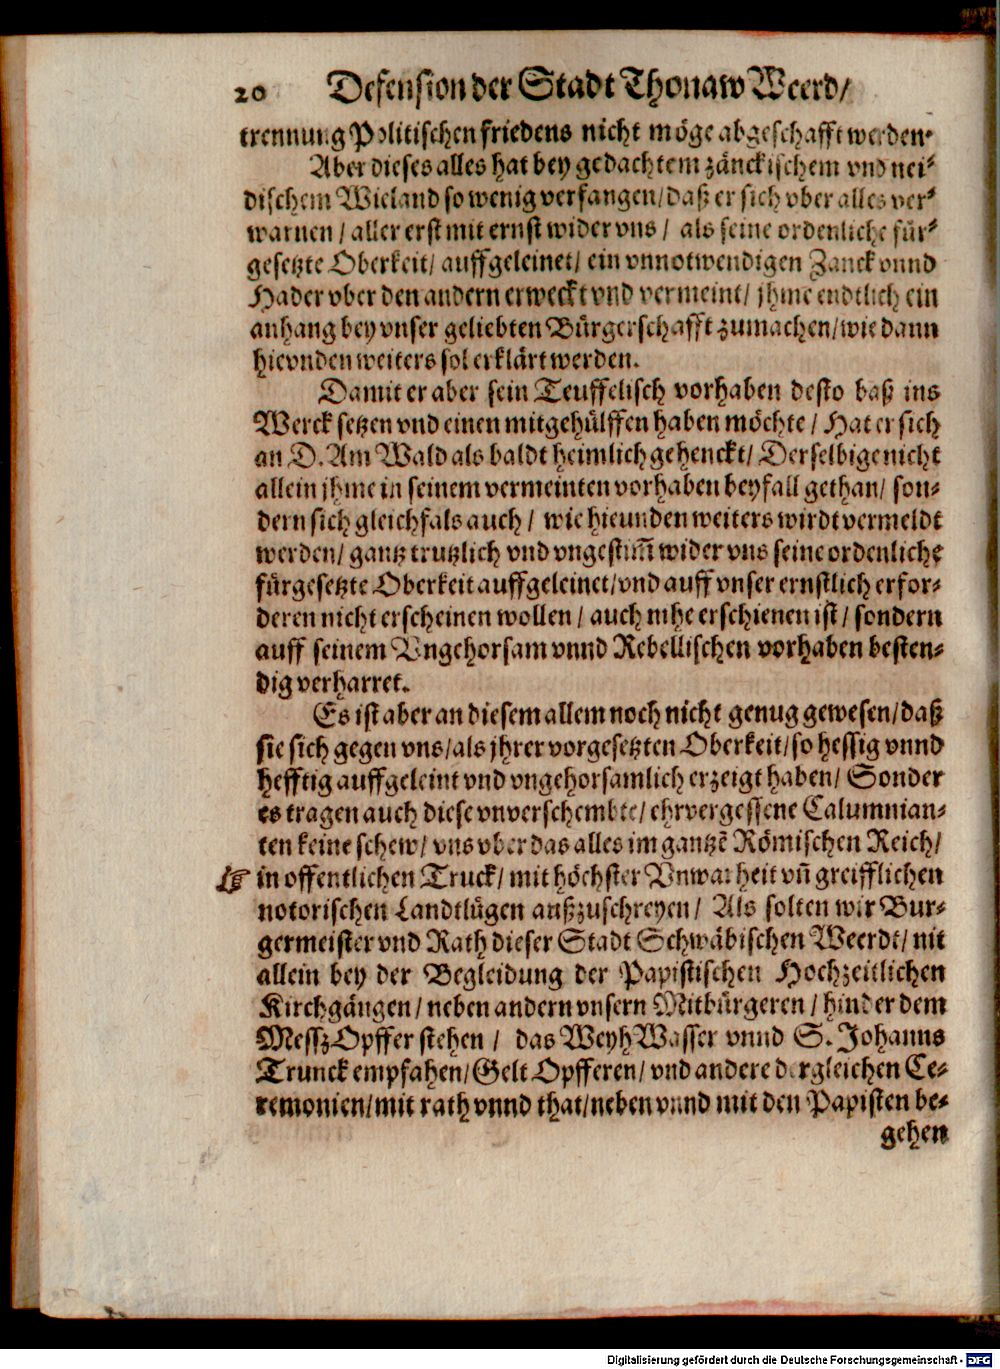 20 Defension der Stadt Thonaw Weerd/
trennung Politischen friedens nicht möge abgeschafft werden.
Aber dieses alles hat bey gedachtem zänckischem vnd nei-
dischem Wieland so wenig verfangen/ daß er sich vber alles ver-
warnen / aller erst mit ernst wider vns / als seine ordenliche für-
gesetzte Oberkeit/ auffgeleinet/ ein vnnotwendigen Zanck vnnd
Hader vber den andern erweckt vnd vermeint/ jhme endtlich ein
anhang bey vnser geliebten Bürgerschafft zumachen/ wie dann
hievnden weiters sol erklärt werden.
Damit er aber sein Teuffelisch vorhaben desto baß ins
Werck setzen vnd einen mitgehülffen haben möchte / Hat er sich
an D. Am Wald als baldt heimlich gehenckt/ Derselbige nicht
allein jhme in seinem vermeinten vorhaben beyfall gethan/ son-
dern sich gleichfals auch / wie hieunden weiters wirdt vermeldt
werden/ gantz trutzlich vnd vngestim̃ wider vns seine ordenliche
fürgesetzte Oberkeit auffgeleinet/ vnd auff vnser ernstlich erfor-
deren nicht erscheinen wollen / auch nihe erschienen ist / sondern
auff seinem Vngehorsam vnnd Rebellischen vorhaben besten-
dig verharret.
Es ist aber an diesem allem noch nicht genug gewesen/ daß
sie sich gegen vns/ als jhrer vorgesetzten Oberkeit/ so hessig vnnd
hefftig auffgeleint vnd vngehorsamlich erzeigt haben/ Sonder
es tragen auch diese vnverschembte/ ehrvergessene Calumnian-
ten keine schew/ vns vber das alles im gantzẽ Römischen Reich/
☞ in offentlichen Truck/ mit höchster Vnwarheit vñ greifflichen
notorischen Landtlügen außzuschreyen / Als solten wir Bur-
germeister vnd Rath dieser Stadt Schwäbischen Weerdt/ nit
allein bey der Begleidung der Papistischen Hochzeitlichen
Kirchgängen / neben andern vnsern Mitbürgeren / hinder dem
Messz Opffer stehen / das WeyhWasser vnnd S. Johanns
Trunck empfahen/ Gelt Opfferen/ vnd andere dergleichen Ce-
remonien/ mit rath vnnd that/ neben vnnd mit den Papisten be-
gehen
Digitalisierung gefördert durch die Deutsche Forschungsgemeinschaft - DFG